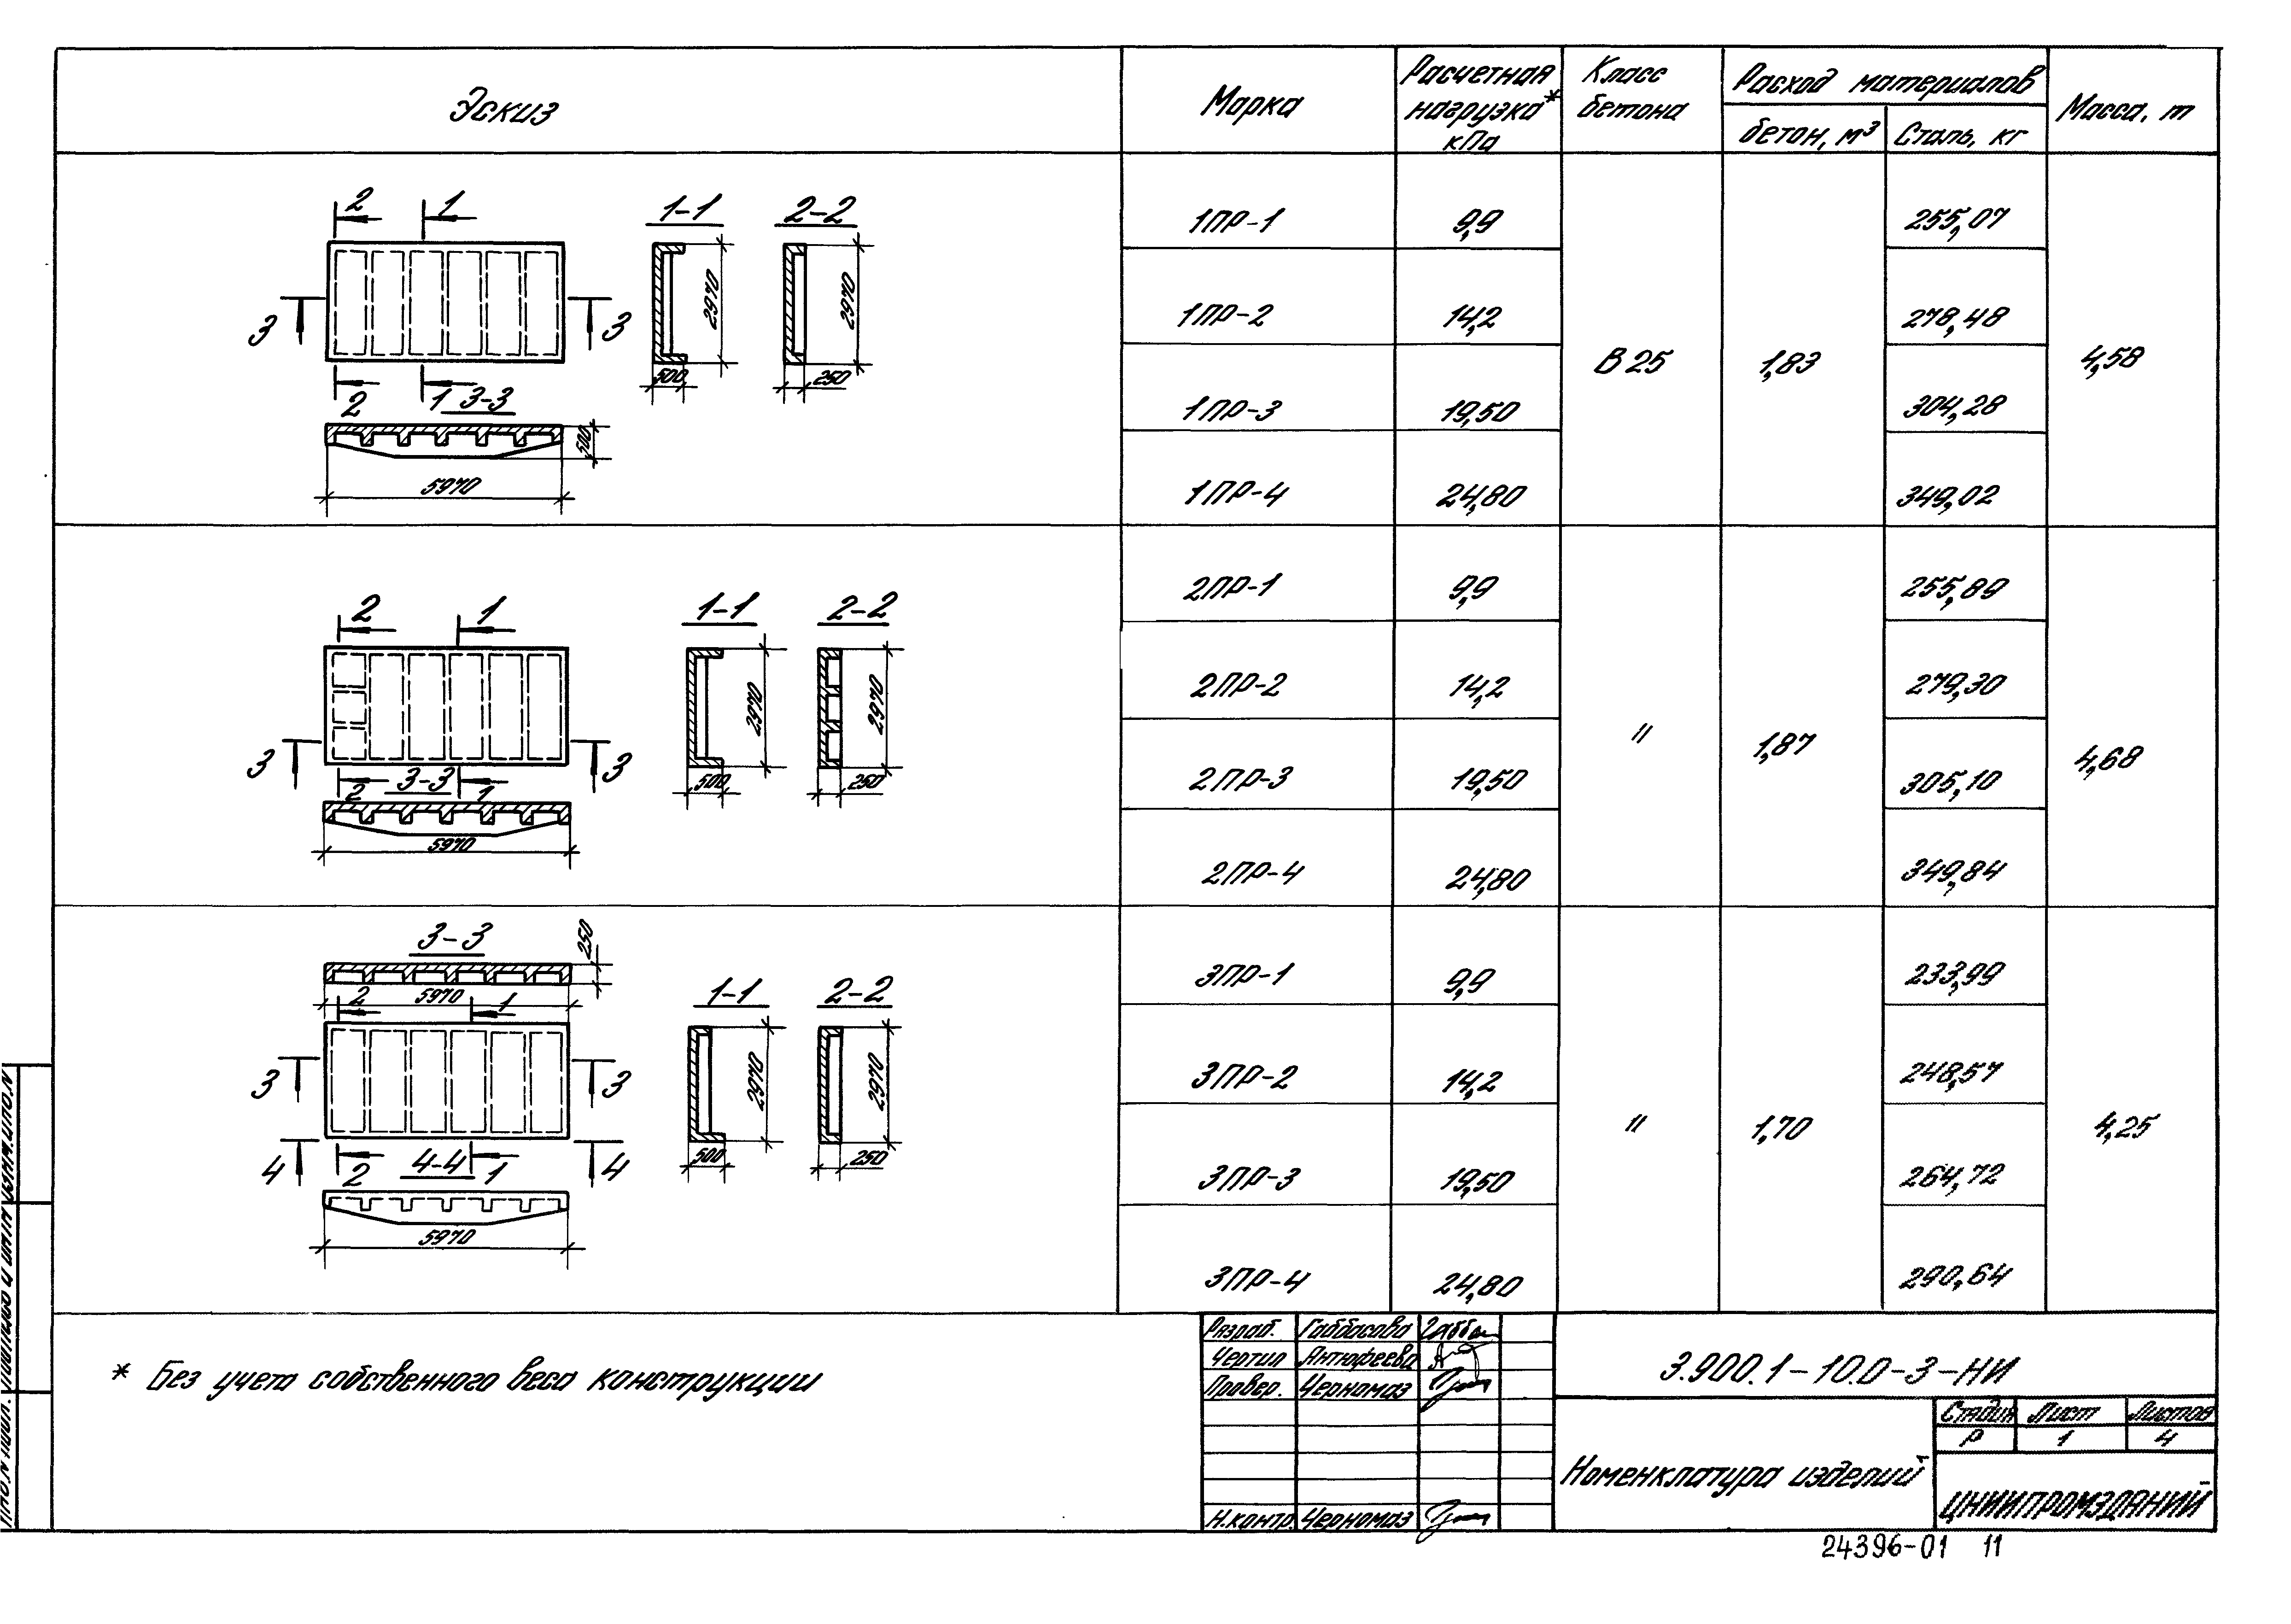 Эскиз
Марка
Расчетная
нагрузка*
кПа
Класс
бетона
Расход материалов
бетон, м³
Сталь, кг
Масса, т
2 1
3 3
2 1
1-1
2970
500
2-2
2970
250
3-3
500
5970
1ПР-1 9,9 255,07
1ПР-2 14,2 278,48
В 25 1,83 4,58
1ПР-3 19,50 304,28
1ПР-4 24,80 349,02
2 1
3 3
2 1
1-1
2970
500
2-2
2970
250
3-3
5970
2ПР-1 9,9 255,89
2ПР-2 14,2 279,30
" 1,87 4,68
2ПР-3 19,50 305,10
2ПР-4 24,80 349,84
3-3
250
5970
2 1
3 3
4 4
2 1
1-1
2970
500
2-2
2970
250
4-4
5970
3ПР-1 9,9 233,99
3ПР-2 14,2 248,57
" 1,70 4,25
3ПР-3 19,50 264,72
3ПР-4 24,80 290,64
* Без учета собственного веса конструкции
Разраб. Габбасова
Чертил Антюфеева
Провер. Черномаз
Н.контр. Черномаз
3.900.1-10.0-3-НИ
Номенклатура изделий
Стадия Лист Листов
Р 1 4
ЦНИИПРОМЗДАНИЙ
24396-01 11